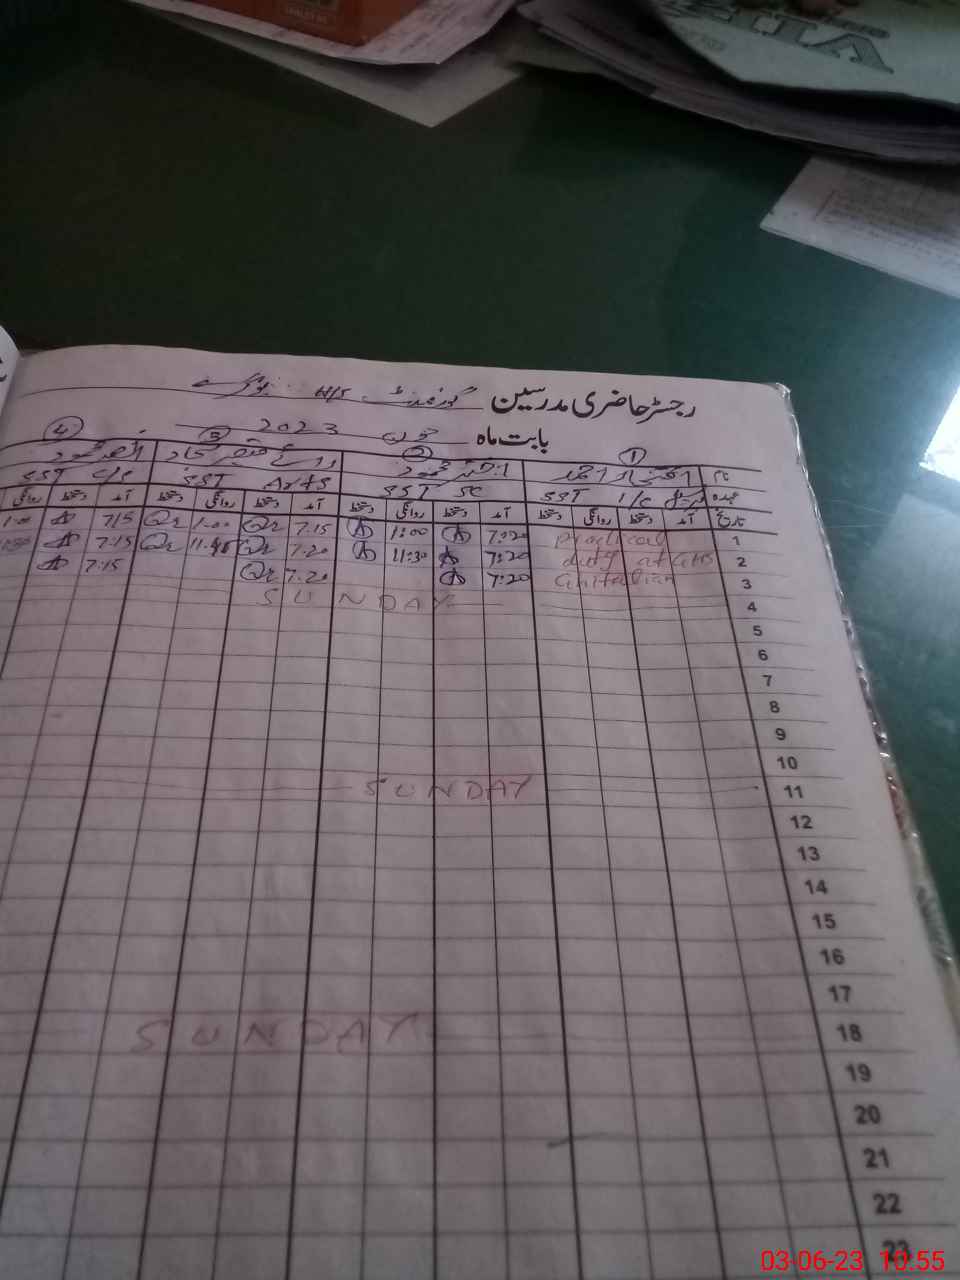 رجسٹر حاضری مدرسین گورنمنٹ H/S
بابت ماہ جون 2023
① ② ③ ④
نام افتخار احمد اختر محمود
عہدہ SST I/c SST SC SST Arts SST C/S
تاریخ آمد دستخط روانگی دستخط آمد دستخط روانگی دستخط آمد دستخط روانگی دستخط آمد دستخط روانگی
1 Practical 7:20 1:00 7.15 1.00 7.15 1.00
2 duty at GHS 7:20 11:30 7.20 11.45 7.15
3 7:20 7.20 7.15
4 SUNDAY
5
6
7
8
9
10
11 SUNDAY
12
13
14
15
16
17
18 SUNDAY
19
20
21
22
23
03-06-23 10:55